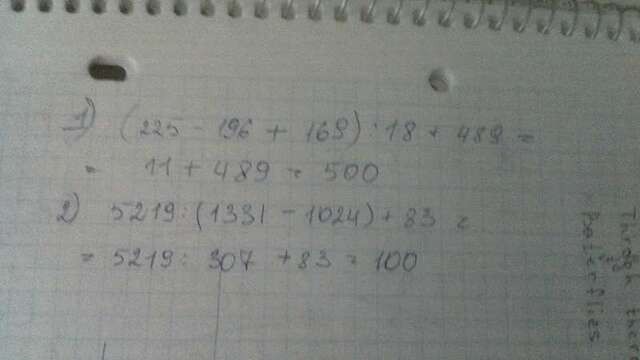 1) (225 - 196 + 169) : 18 + 489 =
= 11 + 489 = 500
2) 5219 : (1331 - 1024) + 83 =
= 5219 : 307 + 83 = 100
Through the